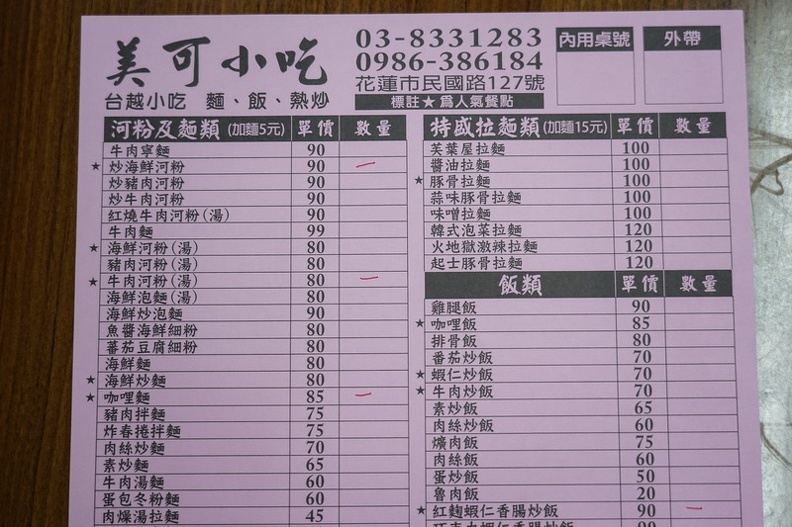 美可小吃
台越小吃 麵、飯、熱炒
03-8331283
0986-386184
花蓮市民國路127號
標註★為人氣餐點
內用桌號 外帶
河粉及麵類 (加麵5元) 單價 數量
牛肉寧麵 90
★ 炒海鮮河粉 90 一
炒豬肉河粉 90
炒牛肉河粉 90
紅燒牛肉河粉(湯) 90
牛肉麵 99
★ 海鮮河粉(湯) 80
豬肉河粉(湯) 80
★ 牛肉河粉(湯) 80 一
海鮮泡麵(湯) 80
海鮮炒泡麵 90
魚醬海鮮細粉 80
蕃茄豆腐細粉 80
海鮮麵 80
★ 海鮮炒麵 80
★ 咖哩麵 85 一
豬肉拌麵 75
炸春捲拌麵 75
肉絲炒麵 70
素炒麵 65
牛肉湯麵 60
蛋包冬粉麵 60
肉燥湯拉麵 45
特盛拉麵類 (加麵15元) 單價 數量
芙葉屋拉麵 100
醬油拉麵 100
★ 豚骨拉麵 100
蒜味豚骨拉麵 100
味噌拉麵 100
韓式泡菜拉麵 120
火地獄激辣拉麵 120
起士豚骨拉麵 120
飯類 單價 數量
雞腿飯 90
★ 咖哩飯 85
排骨飯 80
番茄炒飯 70
★ 蝦仁炒飯 70
★ 牛肉炒飯 70
素炒飯 65
肉絲炒飯 60
爌肉飯 75
肉絲飯 60
蛋炒飯 50
魯肉飯 20
★ 紅麴蝦仁香腸炒飯 90 一